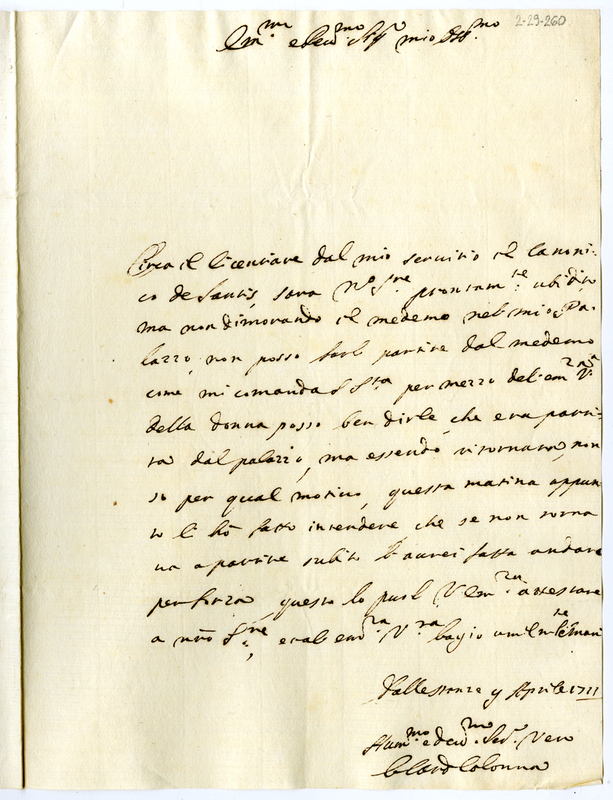 2-29-260
Em.mo e Rev.mo Sig.r mio Oss.mo
Circa il licentiare dal mio servitio il Canoni-
co de Santis, sara N.ro S.re prontam.te ubidito
ma non dimorando il medemo nel mio Pa-
lazzo, non posso farlo partire dal medemo
come mi comanda S S.ta per mezzo dell em.za V.ra
della donna posso ben dirle, che era parti-
ta dal palazzo, ma essendo ritornata, non
so per qual motivo, questa matina appun-
to li hò fatto intendere che se non torna
va a partire subito l'aurei fatta andare
per forza questo lo puol V Em.za attestare
a nrõ S.re, e all em.za V.ra bagio um.te le mani
Dalle stanze 9 Aprile 1711
Hum.mo e dev.mo Ser.r Vero
Colonna